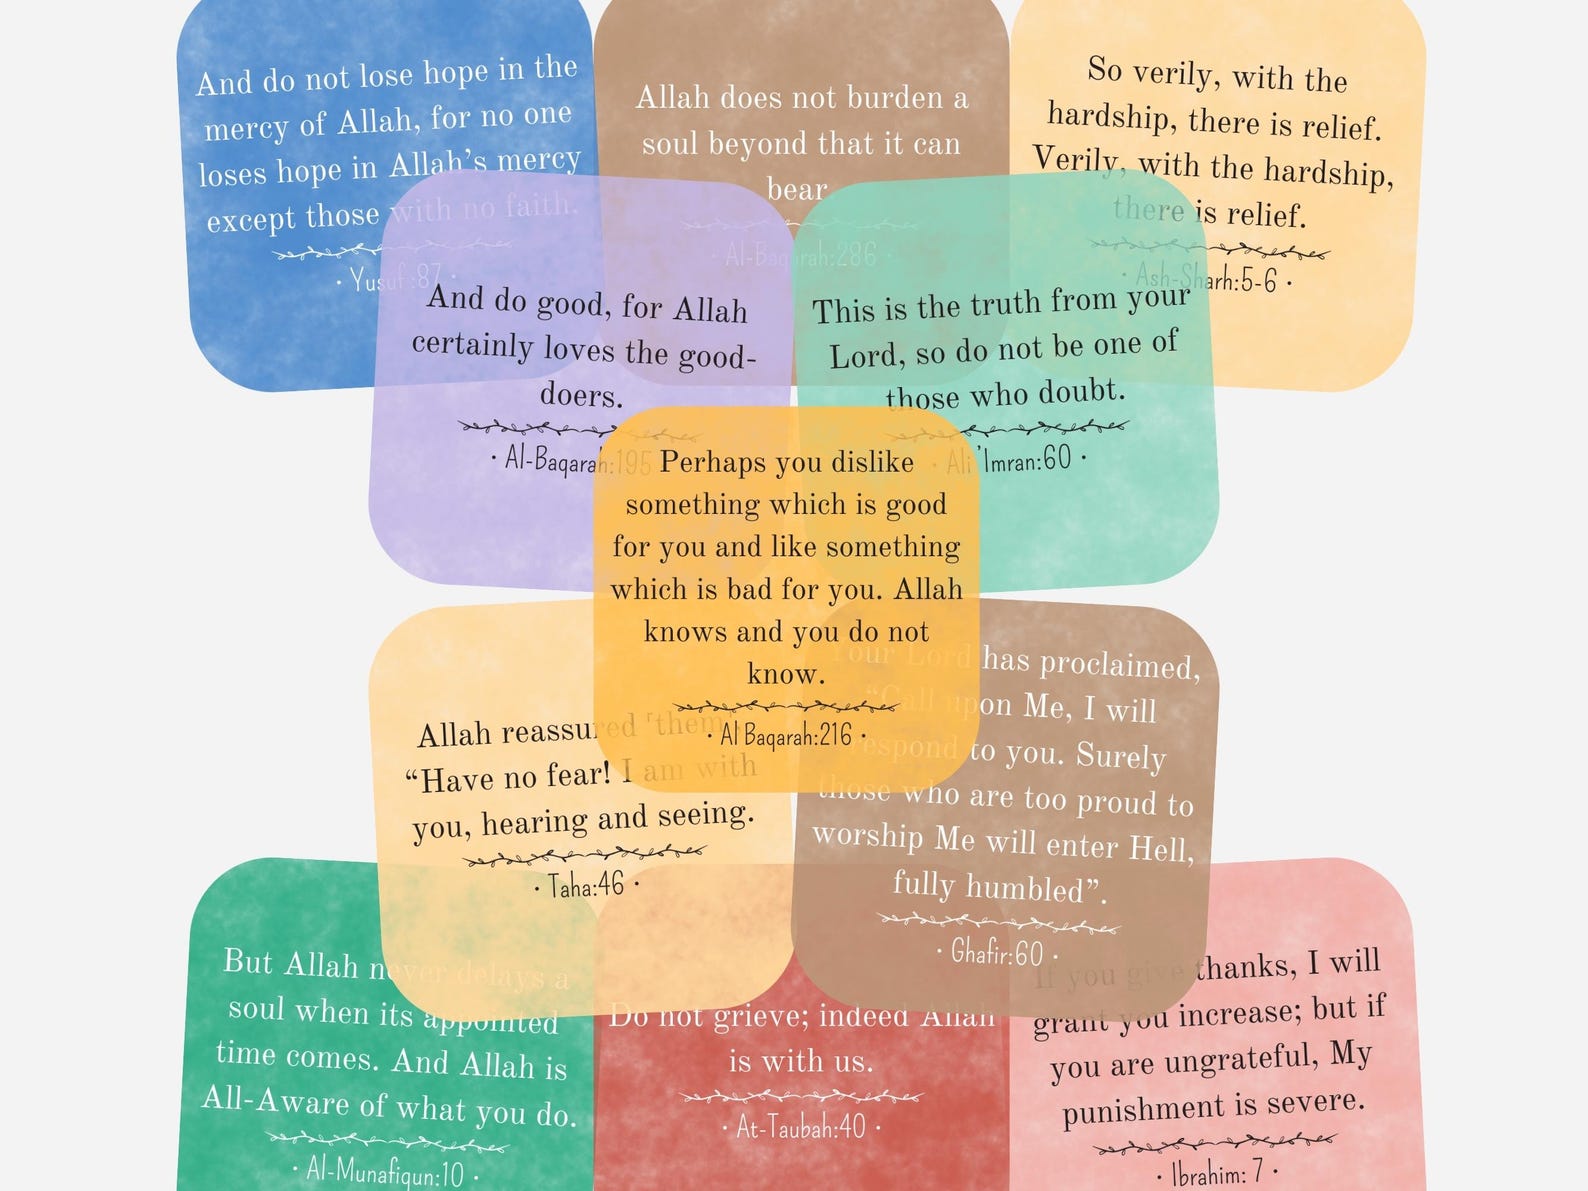 And do not lose hope in the
mercy of Allah, for no one
loses hope in Allah’s mercy
except those with no faith.
· Yusuf :87 ·
Allah does not burden a
soul beyond that it can
bear
· Al-Baqarah:286 ·
So verily, with the
hardship, there is relief.
Verily, with the hardship,
there is relief.
· Ash-Sharh:5-6 ·
And do good, for Allah
certainly loves the good-
doers.
· Al-Baqarah:195
This is the truth from your
Lord, so do not be one of
those who doubt.
· Ali 'Imran:60 ·
Perhaps you dislike
something which is good
for you and like something
which is bad for you. Allah
knows and you do not
know.
· Al Baqarah:216 ·
Allah reassured 'them',
“Have no fear! I am with
you, hearing and seeing.
· Taha:46 ·
Your Lord has proclaimed,
“Call upon Me, I will
respond to you. Surely
those who are too proud to
worship Me will enter Hell,
fully humbled”.
· Ghafir:60 ·
But Allah never delays a
soul when its appointed
time comes. And Allah is
All-Aware of what you do.
· Al-Munafiqun:10 ·
Do not grieve; indeed Allah
is with us.
· At-Taubah:40 ·
If you give thanks, I will
grant you increase; but if
you are ungrateful, My
punishment is severe.
· Ibrahim: 7 ·